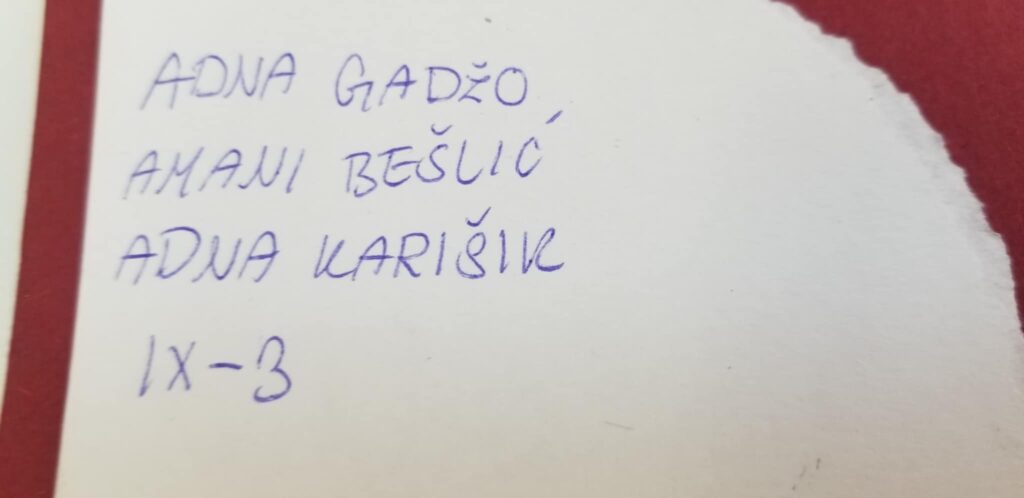 ADNA GADŽO
AMANI BEŠLIĆ
ADNA KARIŠIK
IX-3